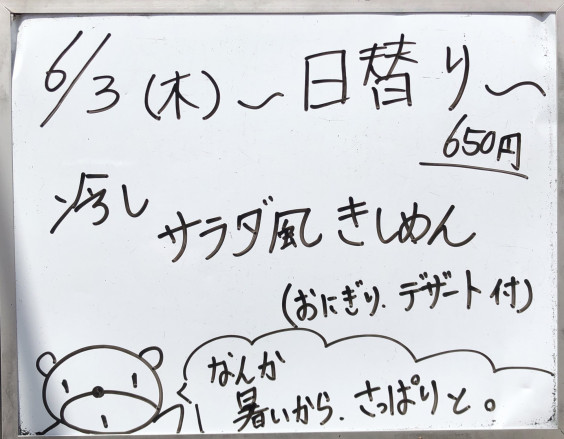 6/3(木)〜日替り〜
650円
冷し
サラダ風きしめん
(おにぎり、デザート付)
なんか
暑いから、さっぱりと。